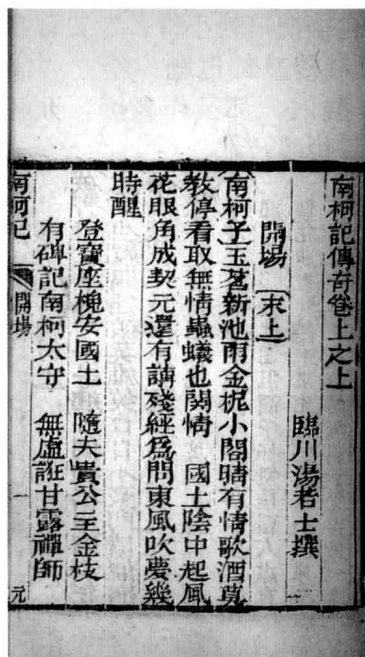 南柯記傳奇卷上之上
臨川湯若士撰
開場 〔末上〕
南柯子玉茗新池雨金柅小閣晴有情歌酒莫
教停看取無情蟲蟻也関情 國土陰中起風
花眼角成契元還有講殘經爲問東風吹夢幾
時醒
登寶座槐安國土 隨夫貴公主金枝
有碑記南柯太守 無虛誑甘露禪師
南柯記 開場 一 元